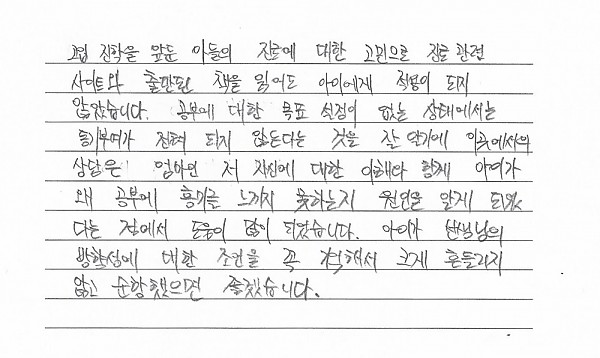 고입 진학을 앞둔 아들의 진로에 대한 고민으로 진로 관련
사이트와 출판된 책을 읽어도 아이에게 적용이 되지
않았습니다. 공부에 대한 목표 설정이 없는 상태에서는
동기부여가 전혀 되지 않는다는 것을 잘 알기에 이곳에서의
상담은 엄마인 저 자신에 대한 이해와 함께 아이가
왜 공부에 흥미를 느끼지 못하는지 원인을 알게 되었
다는 점에서 도움이 많이 되었습니다. 아이가 선생님의
방향성에 대한 조언을 꼭 격해서 크게 흔들리지
않고 순항했으면 좋겠습니다.